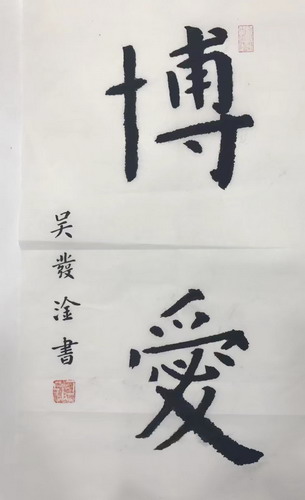 博愛
吴發淦書